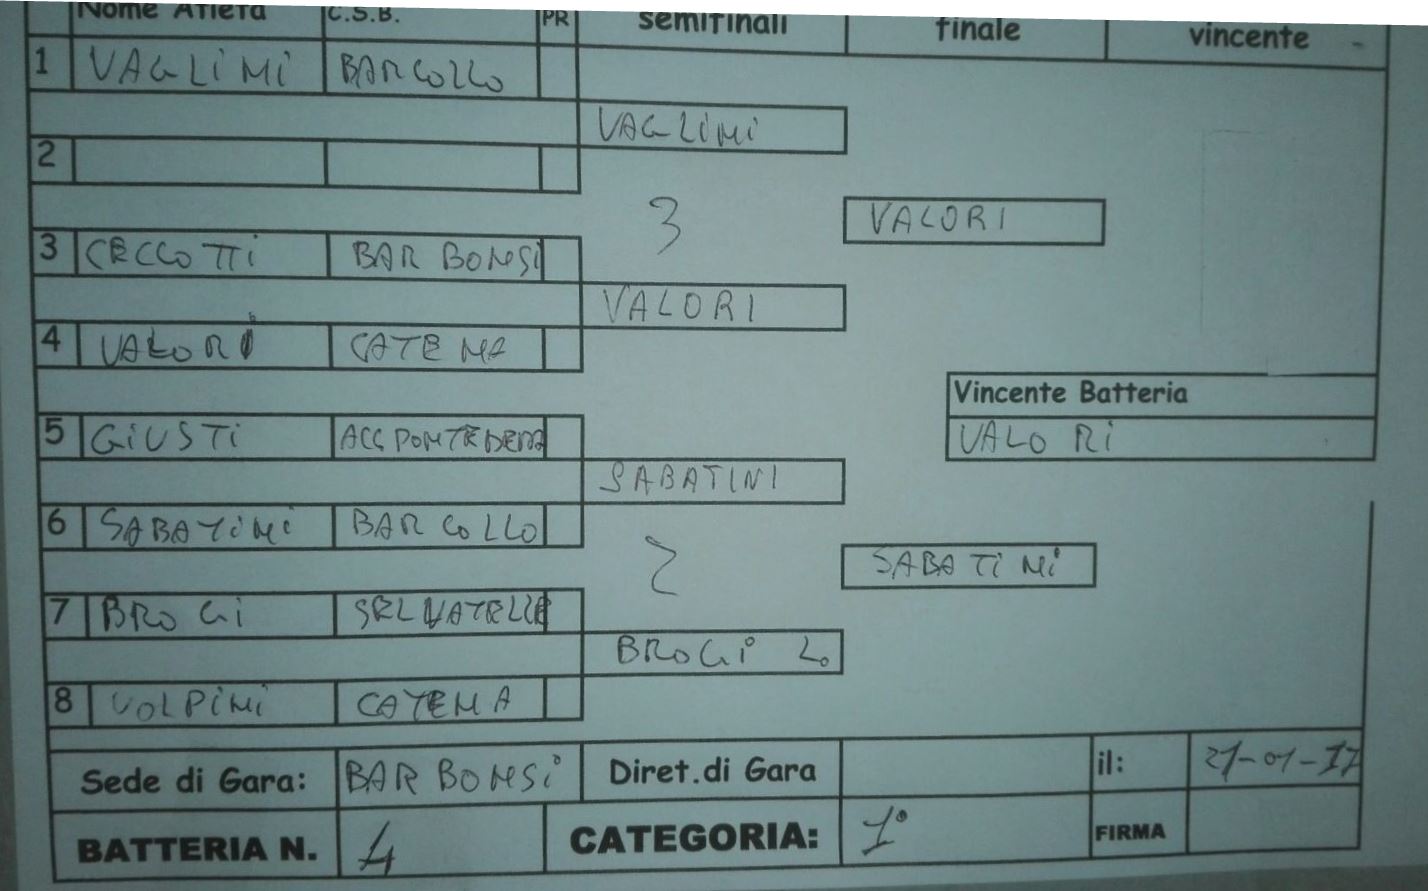 Nome Atleta C.S.B. PR semifinali finale vincente
1 VAGLINI BAR COLLO
VAGLINI
2
3 VALORI
3 CECCOTTI BAR BONSI
VALORI
4 VALORI CATENA
Vincente Batteria
5 GIUSTI ACC PONTEDERA VALORI
SABATINI
6 SABATINI BAR COLLO
2 SABATINI
7 BROGI SELVATELLE
BROGI Lo
8 VOLPINI CATENA
Sede di Gara: BAR BONSI Diret.di Gara il: 21-01-17
BATTERIA N. 4 CATEGORIA: 1° FIRMA